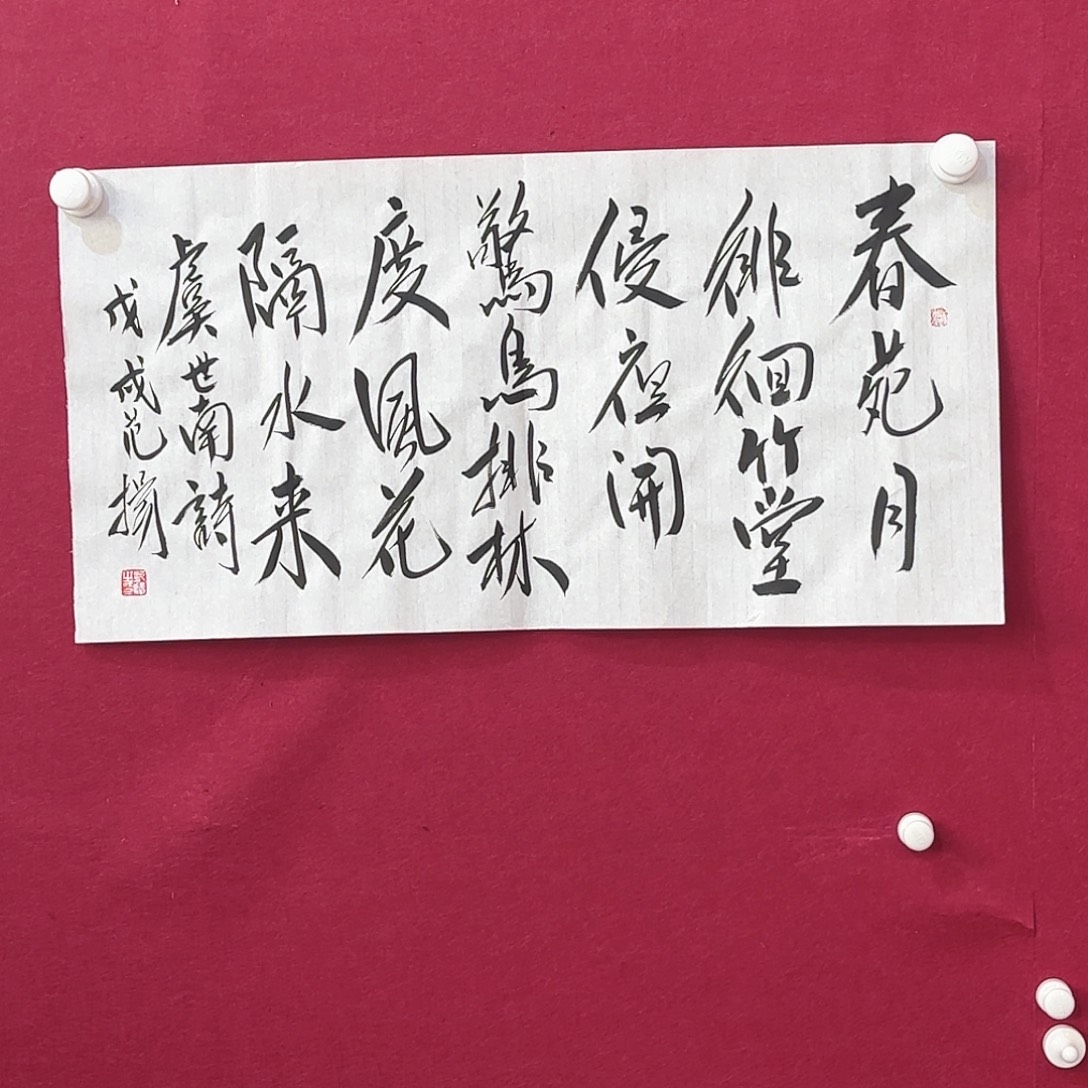 春苑月
徘徊竹堂
侵夜開
驚鳥排林
度風花
隔水来
虞世南詩
戊戌范揚